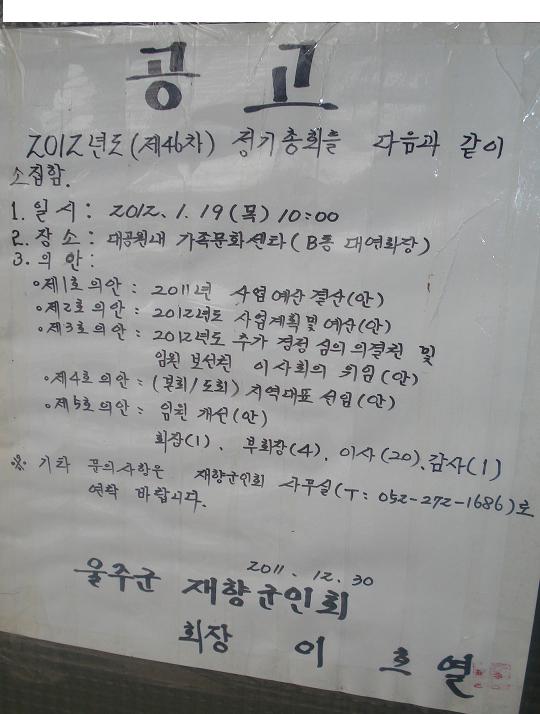 공 고
2012년도(제46차) 정기총회를 다음과 같이
소집함.
1. 일 시 : 2012. 1. 19(목) 10:00
2. 장 소 : 대공원내 가족문화센타(B동 대연회장)
3. 의 안 :
○제1호 의안 : 2011년 사업예산 결산(안)
○제2호 의안 : 2012년도 사업계획 및 예산(안)
○제3호 의안 : 2012년도 추가 경정 심의 의결권 및
임원 보선권 이사회의 위임(안)
○제4호 의안 : (본회/도회) 지역대표 선임(안)
○제5호 의안 : 임원 개선(안)
회장(1), 부회장(4), 이사(20), 감사(1)
※ 기타 문의사항은 재향군인회 사무실(T: 052-272-1686)로
연락 바랍니다.
2011. 12. 30
울주군 재향군인회
회장 이 호 열